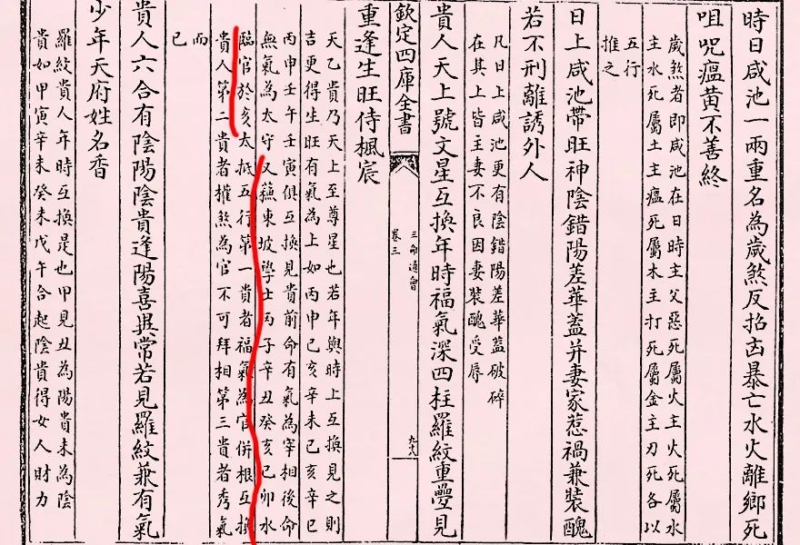 時日咸池一兩重名為歲煞反招凶暴亡水火離鄉死
咀呪瘟黄不善終
歲煞者即咸池在日時主父惡死屬火主火死屬水
主水死屬土主瘟死屬木主打死屬金主刃死各以
五行
推之
日上咸池帶旺神陰錯陽差華蓋并妻家惹禍兼裝醜
若不刑離誘外人
凡日上咸池更有陰錯陽差華蓋破碎
在其上皆主妻不良因妻裝醜受辱
貴人天上號文星互換年時福氣深四柱羅紋重疊見
欽定四庫全書
三命通會
卷三
九八
重逢生旺侍楓宸
天乙貴乃天上至尊星也若年與時上互換見之則
吉更得生旺有氣為上如丙申己亥辛未己亥辛巳
丙申壬午壬寅俱互換見貴前命有氣為宰相後命
無氣為太守又蘇東坡學士丙子辛丑癸亥己卯水
臨官於亥太抵五行第一貴者福氣為官併根互換
貴人第二貴者權煞為官不可拜相第三貴者秀氣
而
已
貴人六合有陰陽陰貴逢陽喜異常若見羅紋兼有氣
少年天府姓名香
羅紋貴人年時互換是也甲見丑為陽貴未為陰
貴如甲寅辛未癸未戊午合起陰貴得女人財力